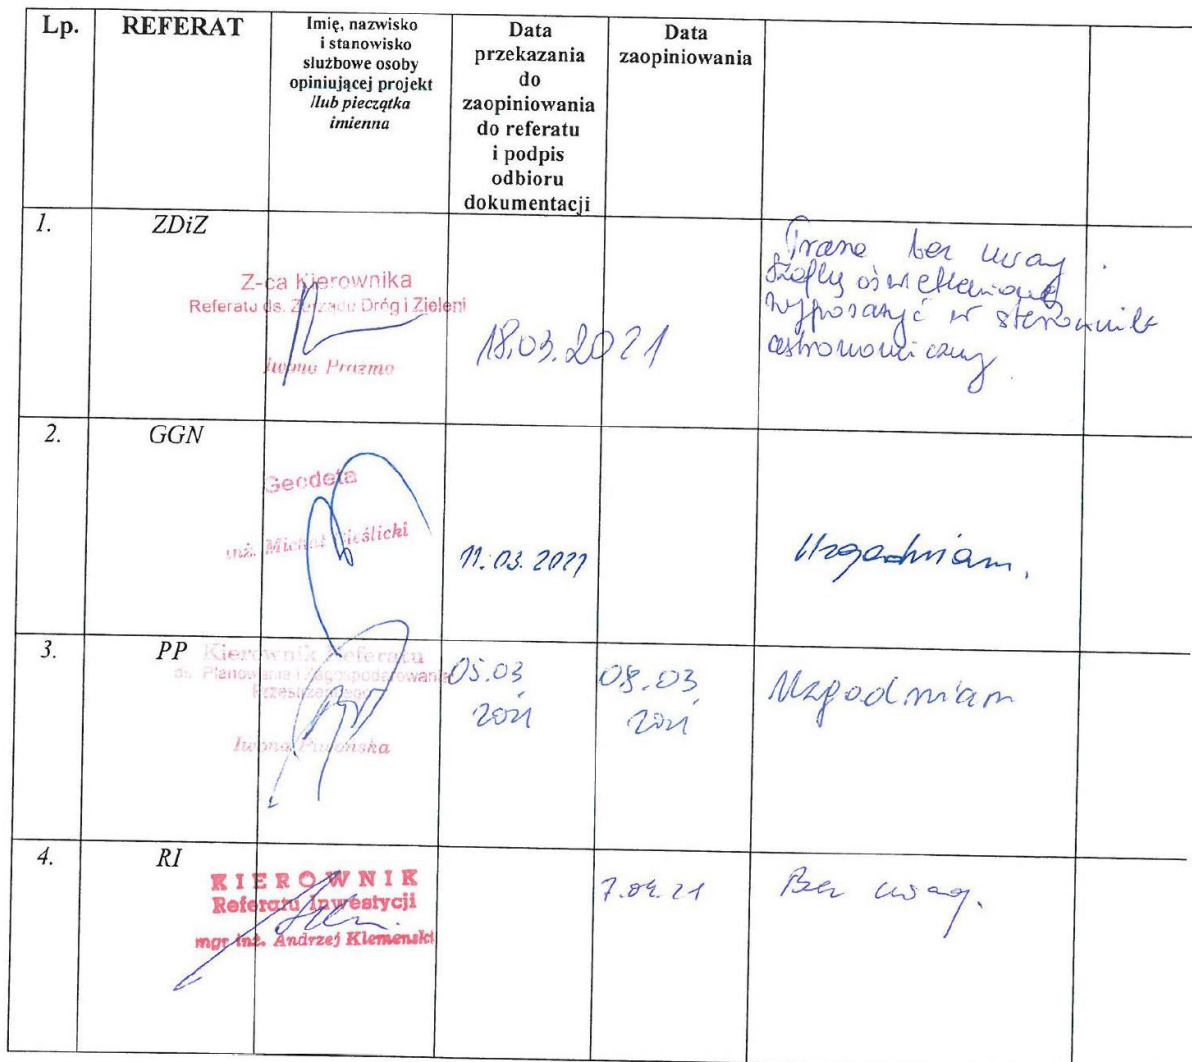 Lp.
REFERAT
Imię, nazwisko
i stanowisko
służbowe osoby
opiniującej projekt
/lub pieczątka
imienna
Data
przekazania
do
zaopiniowania
do referatu
i podpis
odbioru
dokumentacji
Data
zaopiniowania
1.
ZDiZ
Z-ca Kierownika
Referatu ds. Zarządu Dróg i Zieleni
Iwona Prazmo
18.03.2021
bez uwag.
wyposażyć w sterownik
astronomiczny.
2.
GGN
Geodeta
inż. Michał Cieślicki
11.03.2021
Uzgadniam.
3.
PP
Kierownik Referatu
ds. Planowania i Zagospodarowania
Przestrzennego
Iwona
05.03
2021
08.03
2021
Uzgodniam
4.
RI
KIEROWNIK
Referatu Inwestycji
mgr inż. Andrzej Klemenski
7.04.21
Bez uwag.